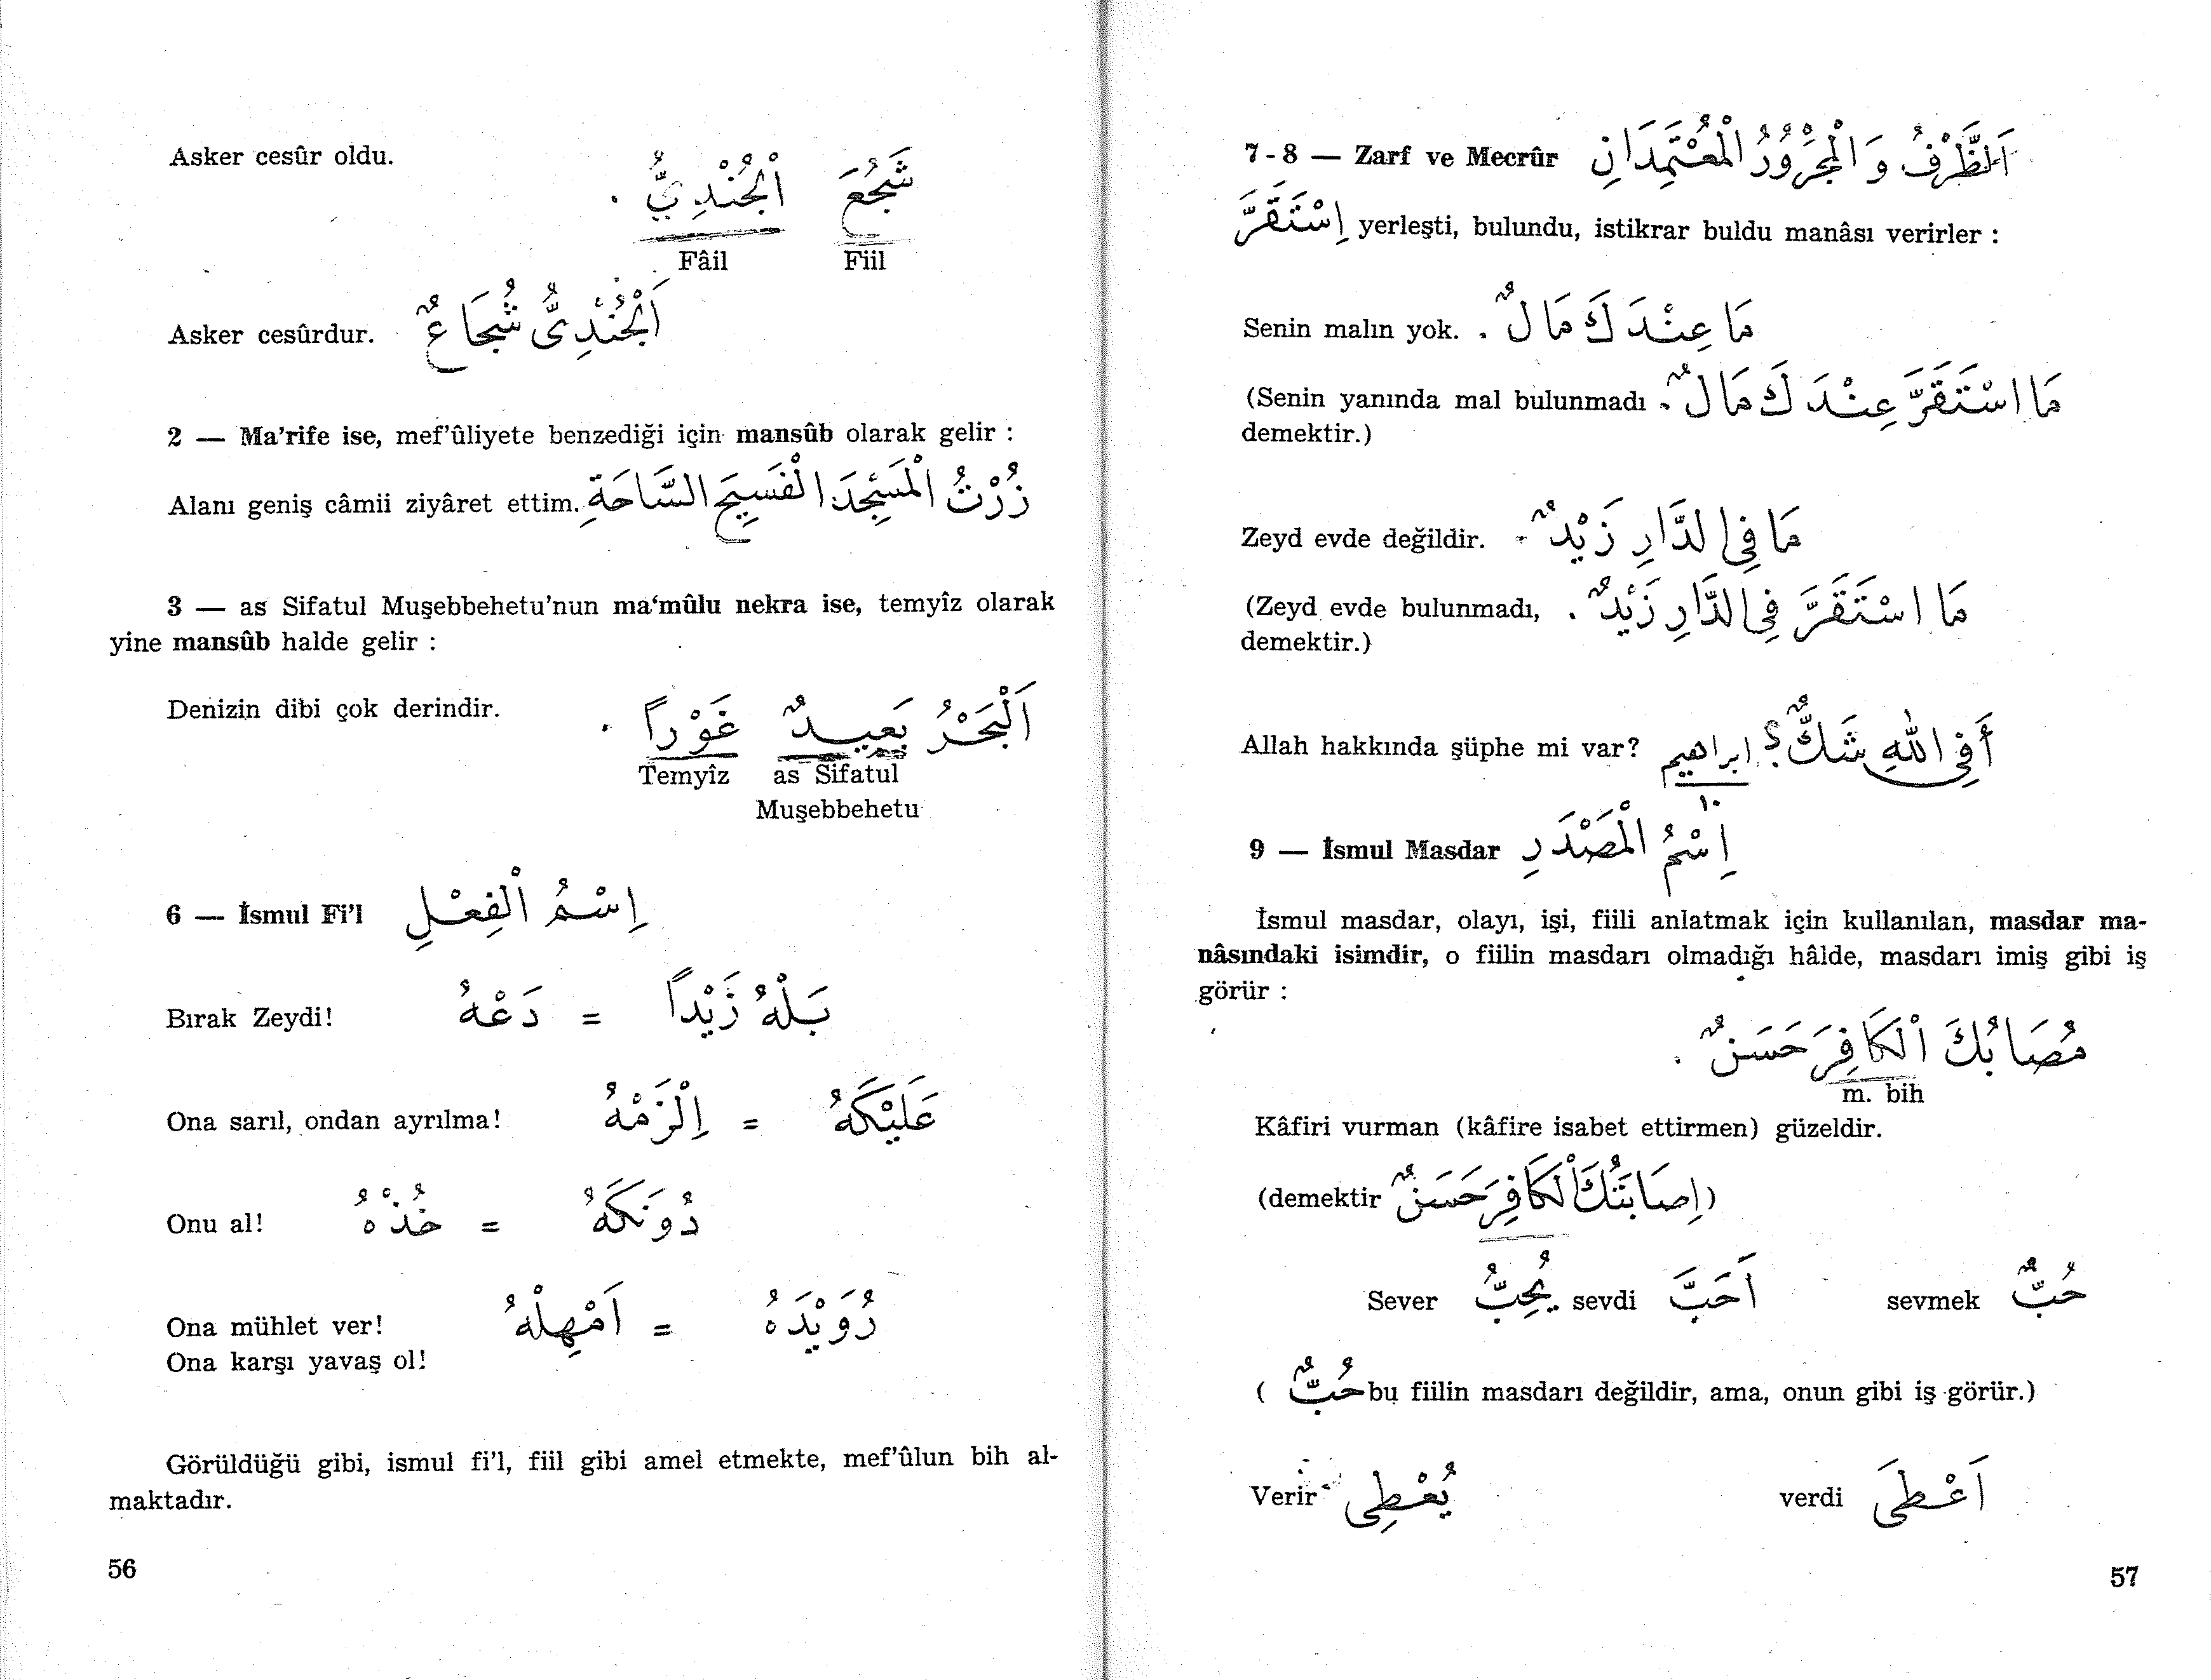 Asker cesûr oldu. شَجُعَ اَلْجُنْدِيُّ .
Fâil Fiil
Asker cesûrdur. اَلْجُنْدِىُّ شُجَاعٌ
2 — Ma'rife ise, mef'ûliyete benzediği için mansûb olarak gelir :
Alanı geniş câmii ziyâret ettim. زُرْتُ الْمَسْجِدَ الْفَسِيحَ السَّاحَةِ
3 — as Sifatul Muşebbehetu'nun ma'mûlu nekra ise, temyîz olarak
yine mansûb halde gelir :
Denizin dibi çok derindir. اَلْبَحْرُ بَعِيدٌ غَوْراً .
Temyîz as Sifatul
Muşebbehetu
6 — İsmul Fi'l اِسْمُ الْفِعْلِ
Bırak Zeydi! بَلْهُ زَيْداً = دَعْهُ
Ona sarıl, ondan ayrılma! عَلَيْكَهُ = اِلْزَمْهُ
Onu al! دُونَكَهُ = خُذْهُ
Ona mühlet ver! رُوَيْدَهُ = اَمْهِلْهُ
Ona karşı yavaş ol!
Görüldüğü gibi, ismul fi'l, fiil gibi amel etmekte, mef'ûlun bih al-
maktadır.
56
7 - 8 — Zarf ve Mecrûr اَلظَّرْفُ وَ الْمَجْرُورُ الْمُعْتَمِدَانِ
اِسْتَقَرَّ yerleşti, bulundu, istikrar buldu manâsı verirler :
Senin malın yok. مَا عِنْدَكَ مَالٌ .
(Senin yanında mal bulunmadı مَا اسْتَقَرَّ عِنْدَكَ مَالٌ .
demektir.)
Zeyd evde değildir. مَا فِى الدَّارِ زَيْدٌ .
(Zeyd evde bulunmadı, مَا اسْتَقَرَّ فِى الدَّارِ زَيْدٌ .
demektir.)
Allah hakkında şüphe mi var? أَفِى اللّٰهِ شَكٌّ؟ ابراهيم
١٠
9 — İsmul Masdar اِسْمُ الْمَصْدَرِ
İsmul masdar, olayı, işi, fiili anlatmak için kullanılan, masdar ma-
nâsındaki isimdir, o fiilin masdarı olmadığı hâlde, masdarı imiş gibi iş
görür :
مُصَابُكَ الْكَافِرَ حَسَنٌ .
m. bih
Kâfiri vurman (kâfire isabet ettirmen) güzeldir.
(demektir اِصَابَتُكَ الْكَافِرَ حَسَنٌ)
Sever يُحِبُّ sevdi اَحَبَّ sevmek حُبٌّ
( حُبٌّ bu fiilin masdarı değildir, ama, onun gibi iş görür.)
Verir يُعْطِى verdi اَعْطَى
57